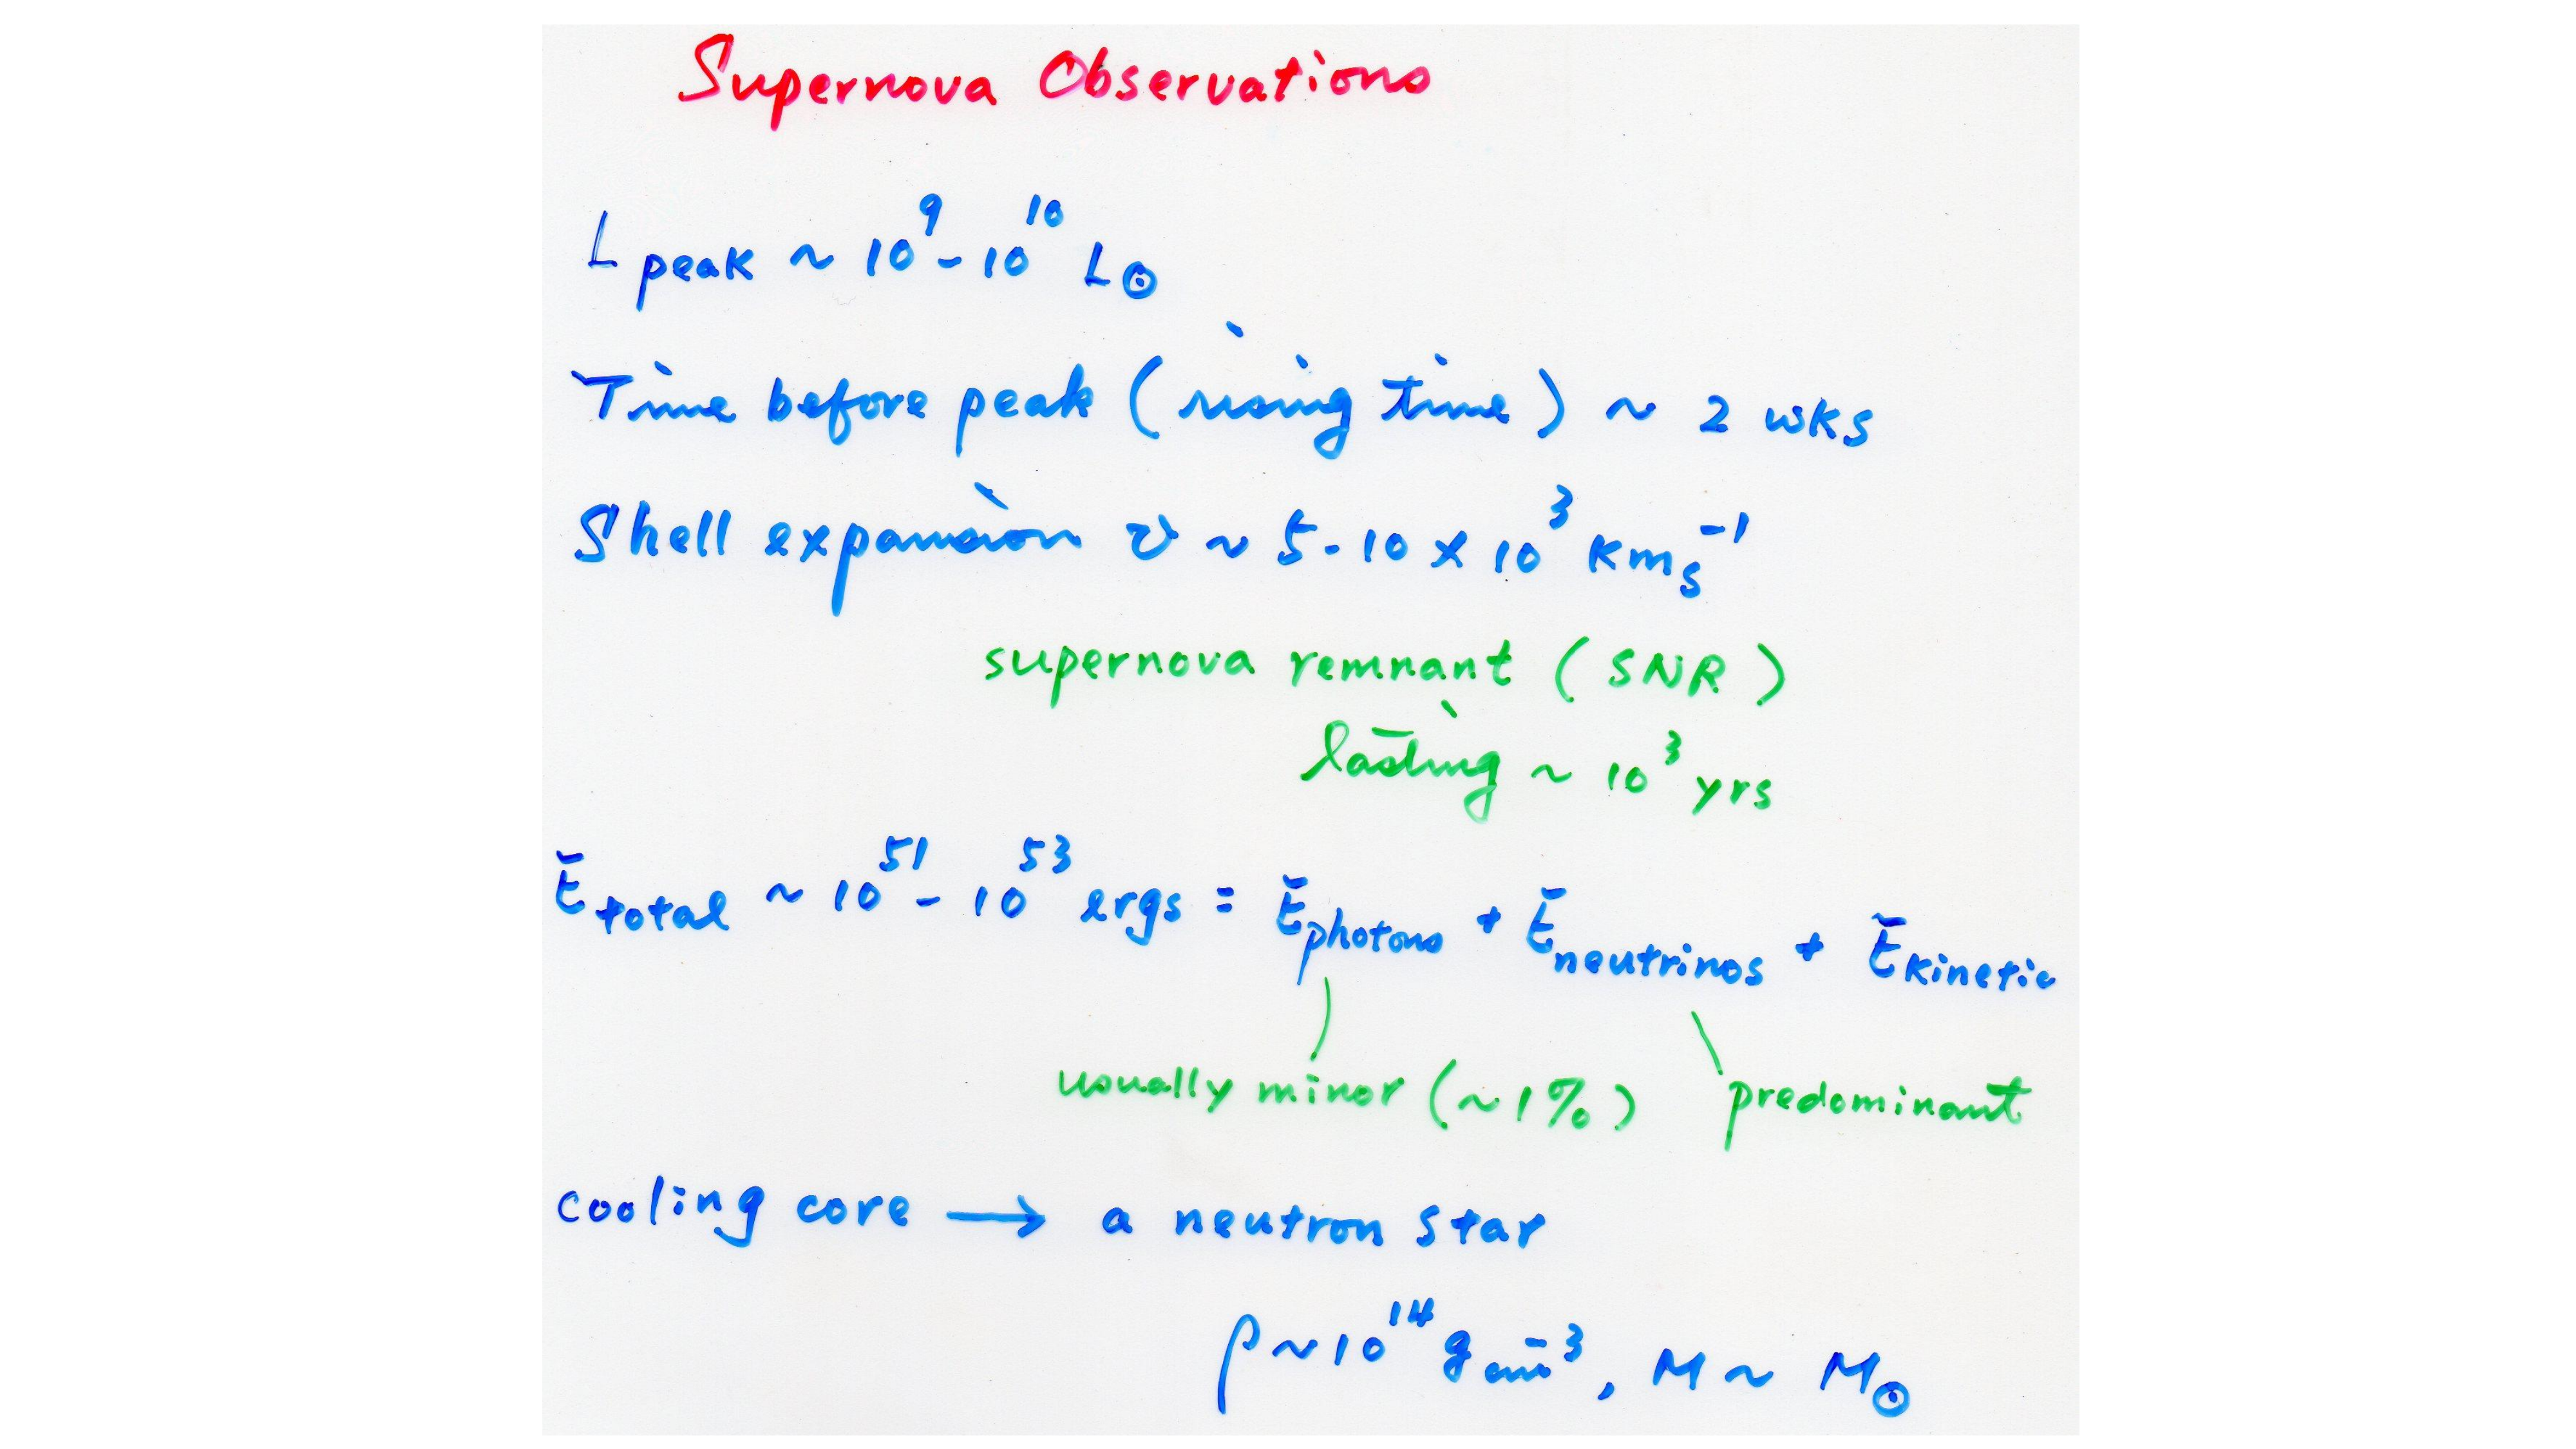 Supernova Observations
L peak ~ 10⁹ - 10¹⁰ L⊙
Time before peak (rising time) ~ 2 wks
Shell expansion v ~ 5 - 10 × 10³ km s⁻¹
supernova remnant (SNR)
lasting ~ 10³ yrs
E total ~ 10⁵¹ - 10⁵³ ergs = E photons + E neutrinos + E kinetic
usually minor (~1%) predominant
cooling core → a neutron star
ρ ~ 10¹⁴ g cm⁻³, M ~ M⊙